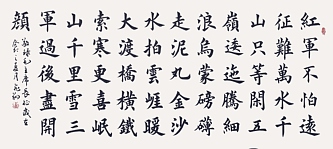 紅軍不怕遠
征難萬水千
山只等閑五
嶺逶迤騰細
浪烏蒙磅礴
走泥丸金沙
水拍雲崖暖
大渡橋橫鐵
索寒更喜岷
山千里雪三
軍過後盡開
顏